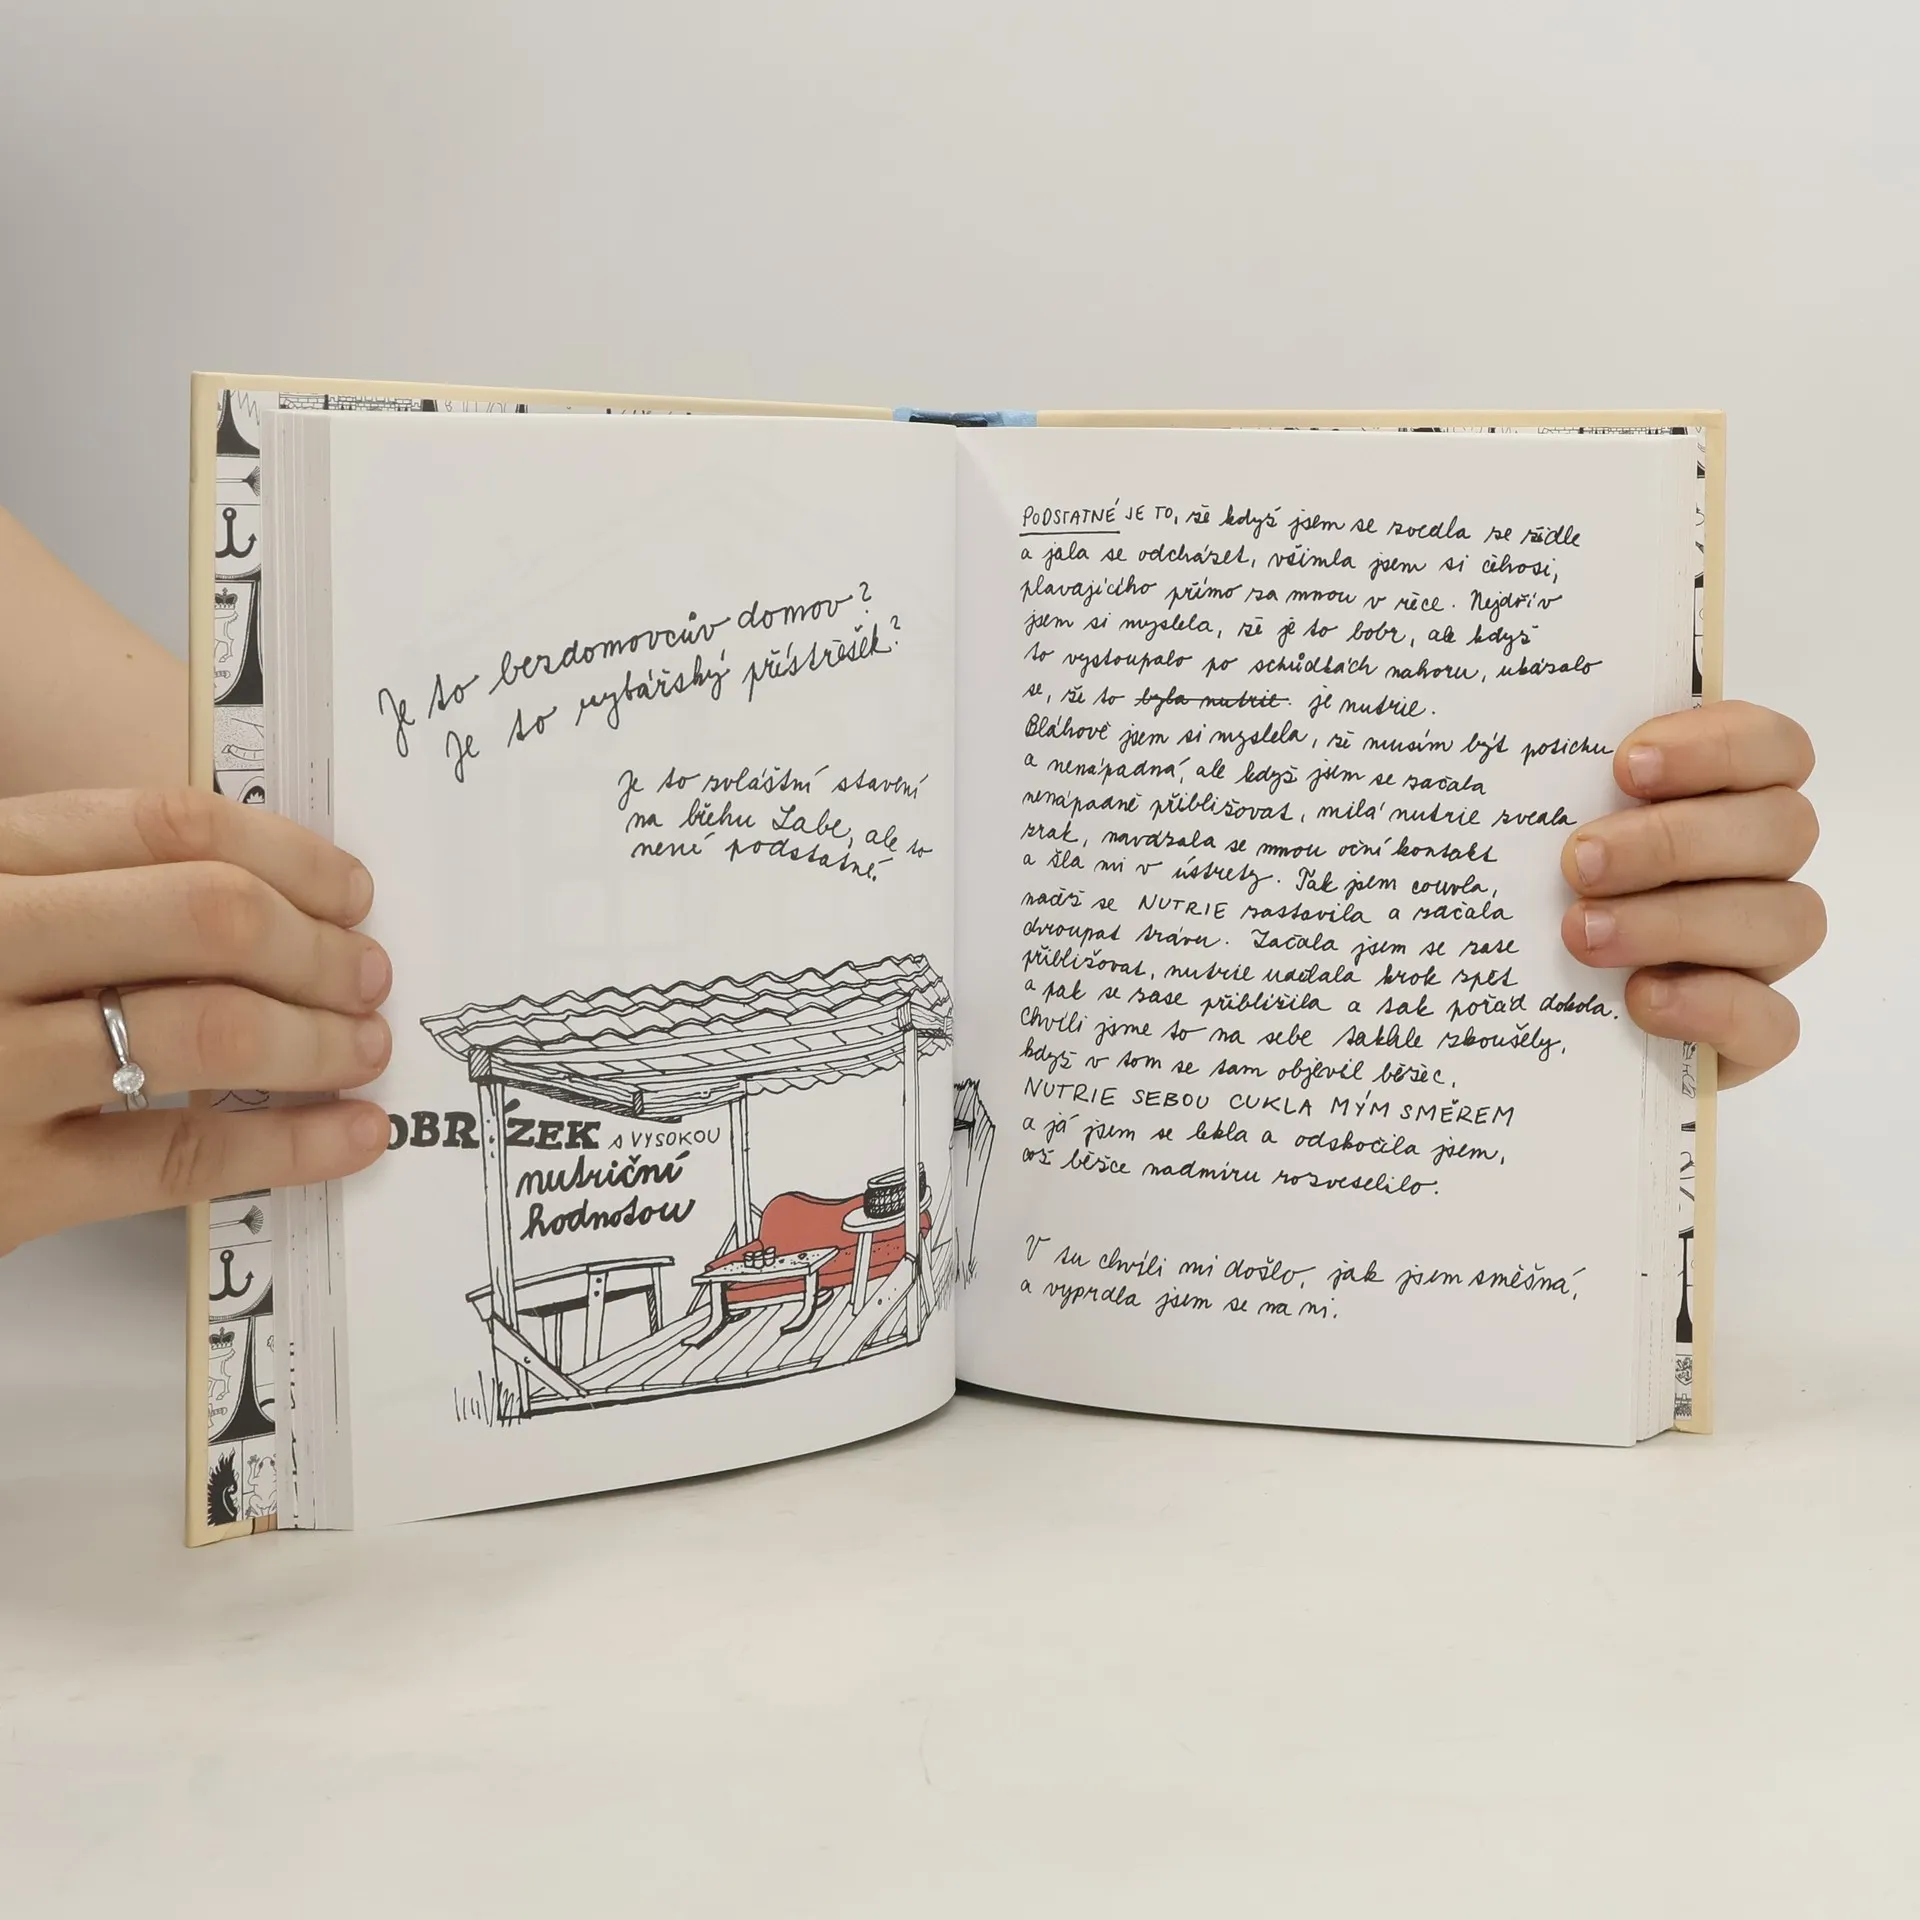 Je to bezdomovcův domov?
Je to rybářský přístřešek?
Je to zvláštní stavení
na břehu Labe, ale to
není podstatné.
OBRÁZEK s VYSOKOU
nutriční
hodnotou
PODSTATNÉ JE TO, že když jsem se zvedla ze židle
a jala se odcházet, všimla jsem si čehosi,
plavajícího přímo za mnou v řece. Nejdřív
jsem si myslela, že je to bobr, ale když
to vystoupalo po schůdkách nahoru, ukázalo
se, že to byla nutrie. je nutrie.
Bláhově jsem si myslela, že musím být potichu
a nenápadná, ale když jsem se začala
nenápadně přibližovat, milá nutrie zvedla
zrak, navázala se mnou oční kontakt
a šla mi v ústrety. Tak jsem couvla,
načež se NUTRIE zastavila a začala
dvoupat trávu. Začala jsem se zase
přibližovat, nutrie udělala krok zpět
a pak se zase přiblížila a tak pořád dokola.
Chvíli jsme to na sebe takhle zkoušely,
když v tom se tam objevil běžec.
NUTRIE SEBOU CUKLA MÝM SMĚREM
a já jsem se lekla a odskočila jsem,
což běžce nadmíru rozveselilo.
V tu chvíli mi došlo, jak jsem směšná,
a vyprdla jsem se na ni.